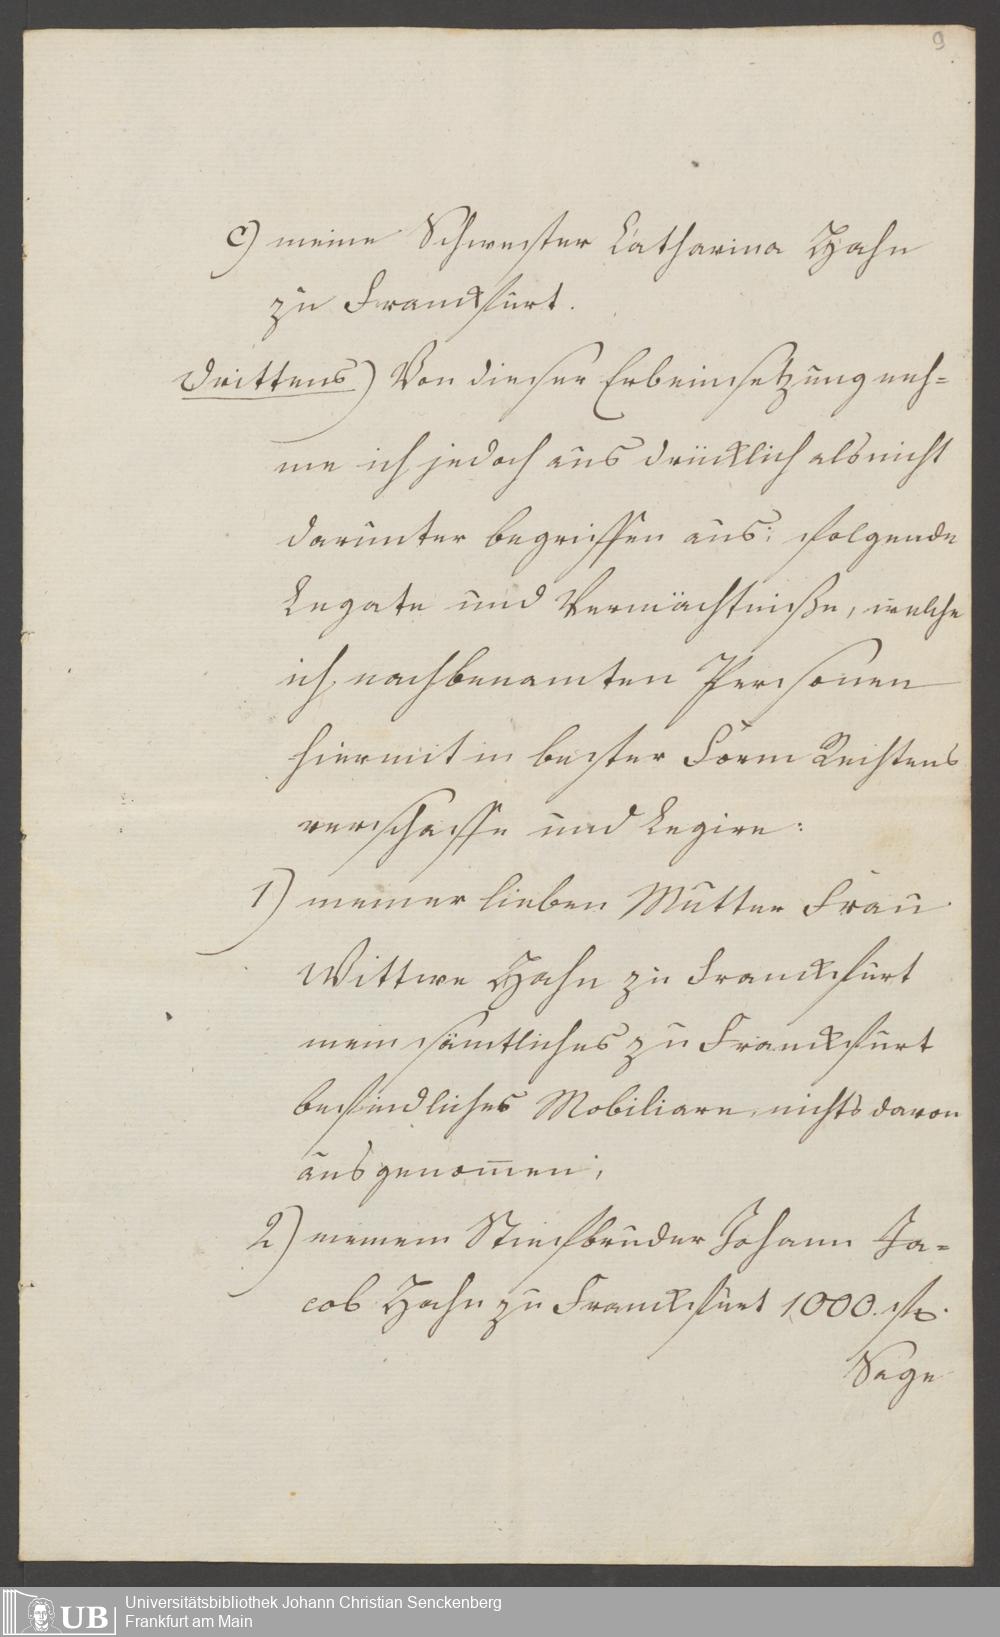 9
c) meine Schwester Catharina Hahn
zu Franckfurt.
Drittens) Von dieser Erbeinsetzung neh=
me ich jedoch ausdrücklich als nicht
darunter begriffen aus: folgende
Legate und Vermächtniße, welche
ich nachbenamten Personen
hiermit in bester Form Rechtens
verschaffe und Legire:
1) meiner lieben Mutter Frau
Wittwe Hahn zu Franckfurt
mein sämtliches zu Franckfurt
befindliches Mobiliare, nichts davon
ausgenom̅en;
2) meinem Stiefbruder Johann Ja=
cob Hahn zu Franckfurt 1000. f.
Sage
UB
Universitätsbibliothek Johann Christian Senckenberg
Frankfurt am Main